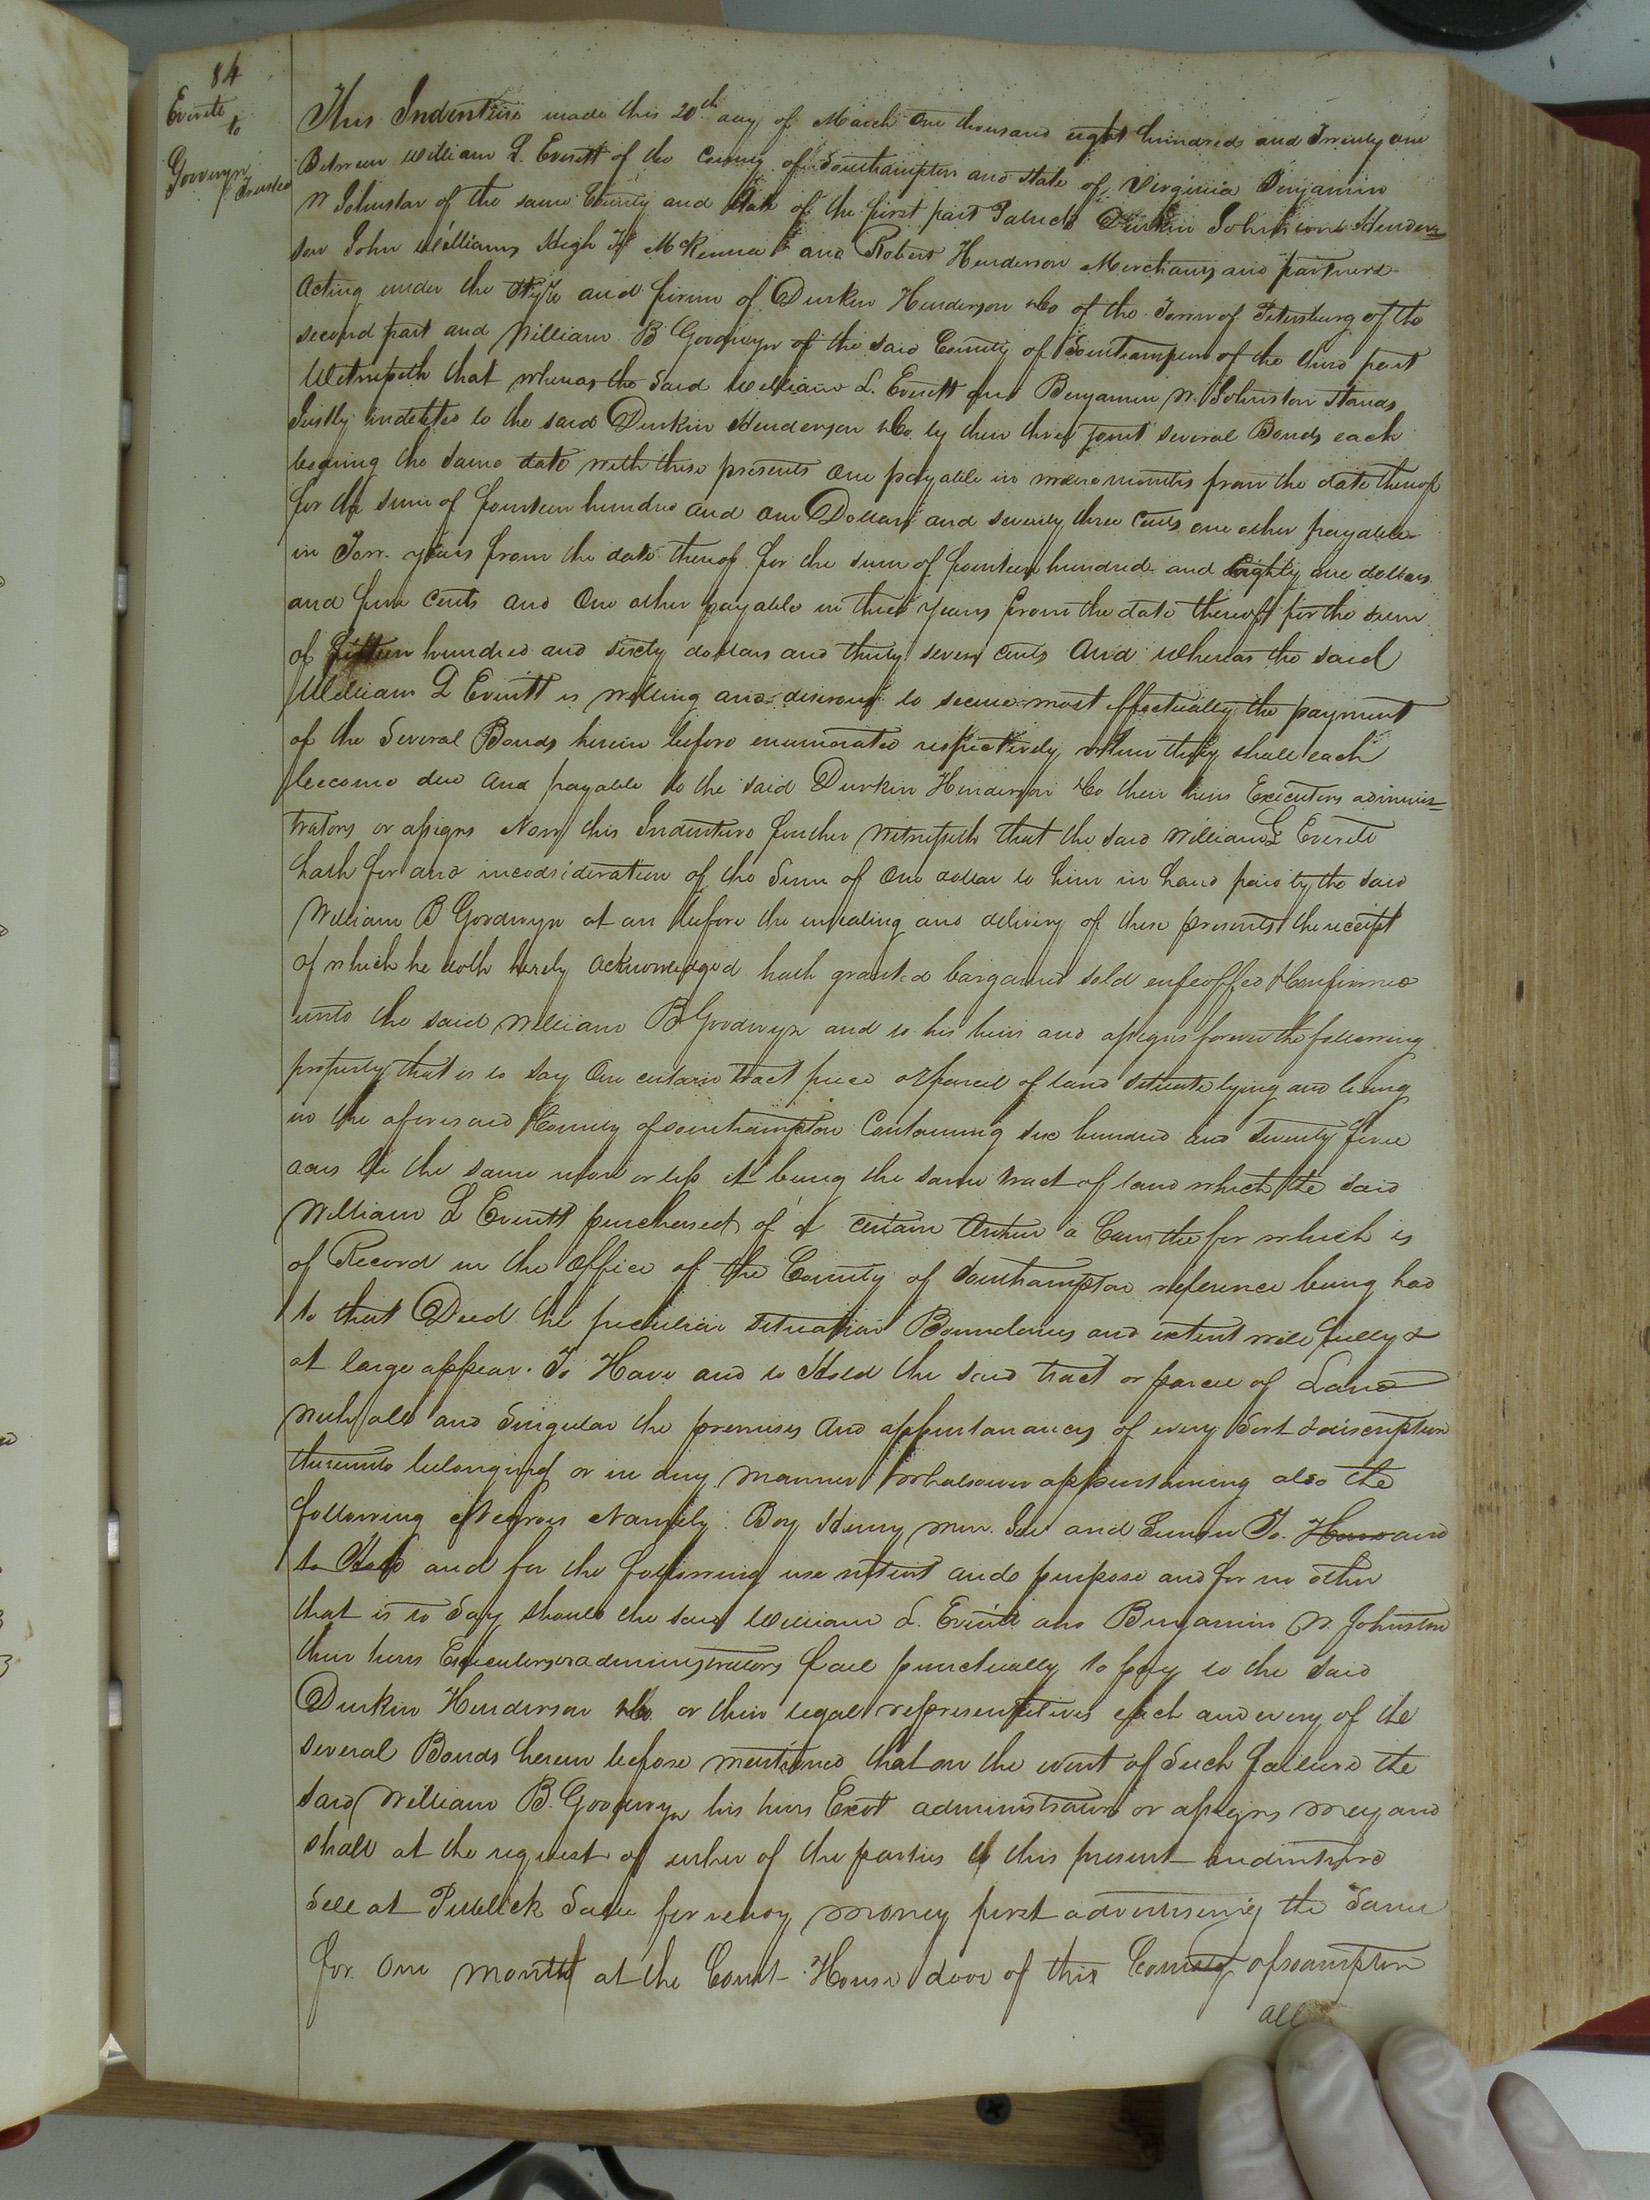 84
Everitt
to
Goodwyn
Trustee
This Indenture made this 20th day of March One thousand eight hundred and Twenty one
Between William L. Everitt of the County of Southampton and state of Virginia Benjamin
W Johnston of the same County and State of the first part Patrick Durkin John Henders=
son John Williams Hugh McKenna and Robert Henderson Merchants and partners
Acting under the Style and firm of Durkin Henderson &Co of the Town of Petersburg of the
second part and William B Goodwyn of the said County of Southampton of the third part
Witnesseth that whereas the said William L. Everitt and Benjamin W. Johnston stands
Justly indebted to the said Durkin Henderson &Co by their three joint several Bonds each
bearing the same date with these presents one payable in months from the date thereof
for the sum of fourteen hundred and one Dollars and seventy three cents one other payable
in Two years from the date thereof for the sum of fourteen hundred and Eighty one dollars
and five cents and One other payable in three years from the date thereof for the sum
of fifteen hundred and sixty dollars and thirty seven cents And whereas the said
William L Everitt is willing and desirous to secure most effectually the payment
of the Several Bonds herein before enumerated respectively when they shall each
become due and payable to the said Durkin Henderson &Co their heirs Executors adminis=
trators or assigns Now this Indenture further Witnesseth that the said William L Everitt
hath for and inconsideration of the Sum of One dollar to him in hand paid by the said
William B Goodwyn at an before the ensealing and delivery of these presents the receipt
of which he doth hereby acknowledged hath granted bargained sold enfeoffed &Confirmed
unto the said William B Goodwyn and to his heirs and assigns forever the following
property that is to say One certain tract piece or parcel of land situate lying and being
in the aforesaid County of Southampton Containing six hundred and seventy five
acres be the same more or less it being the same tract of land which the said
William L Everitt purchased of a certain for which is
of Record in the Office of the County of Southampton reference being had
to that Deed the peculiar situation Boundaries and extent will fully &
at large appear. To Have and to Hold the said tract or parcel of Land
with all and Singular the premises and appurtanances of every Sort & discription
thereunto belonging or in any manner Whatsoever appurtaining also the
following Negroes Namely. Boy Henry and To. Have and
to Hold and for the following use intent and purpose and for no other
that is to Say should the said William L. Everitt and Benjamin W. Johnston
their heirs Executors or administrators fail punctually to pay to the said
Durkin Henderson &Co or their legal representatives each and every of the
several Bonds herein before mentioned that on the event of Such failure the
said William B. Goodwyn his heirs administrators or assigns may and
shall at the request of either of the parties to this present indenture
Sell at Publick Sale for ready money first advertising the Same
for One month at the Court-House door of this County of
all